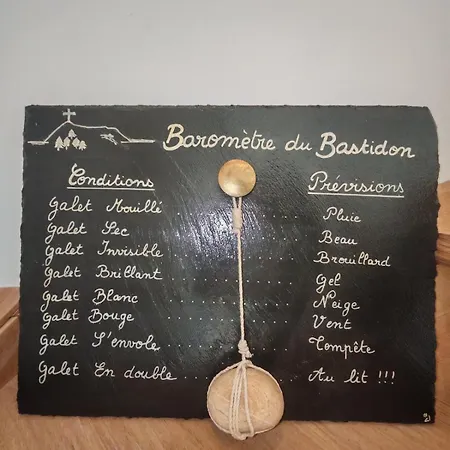 Baromètre du Bastidon
Conditions Prévisions
Galet Mouillé . . . . . . . . . . Pluie
Galet Sec . . . . . . . . . . Beau
Galet Invisible . . . . . . . . . . Brouillard
Galet Brillant . . . . . . . . . . Gel
Galet Blanc . . . . . . . . . . Neige
Galet Bouge . . . . . . . . . . Vent
Galet S'envole . . . . . . . . . . Tempête
Galet En double . . . . . . . . . . Au lit !!!